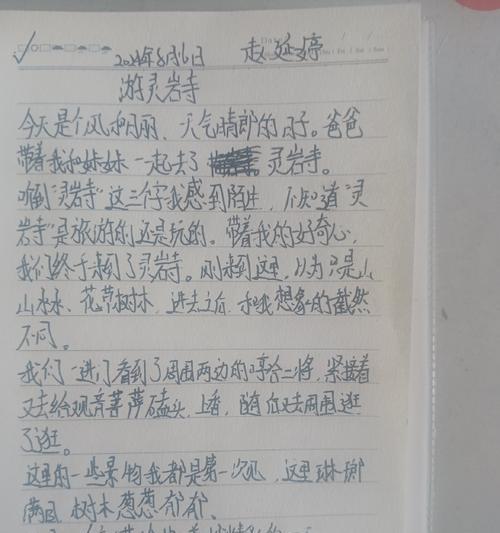 2024年8月6日 赵延婷
游灵岩寺
今天是个风和日丽、天气晴郎的日子。爸爸
带着我和妹妹一起去了灵岩寺。
听到“灵岩寺”这三个字我感到陌生，不知道“灵
岩寺”是旅游的还是玩的。带着我的好奇心，
我们终于来到了灵岩寺。刚来到这里，以为只是山
山水水、花草树木，进去之后，和我想象的截然
不同。
我们一进门看到了周围两边的哼哈二将，紧接着
又去给观音菩萨磕头，上香，随后又去周围逛
了逛。
这里的一些景物我都是第一次见，这里琳琅
满目，树木葱葱郁郁、